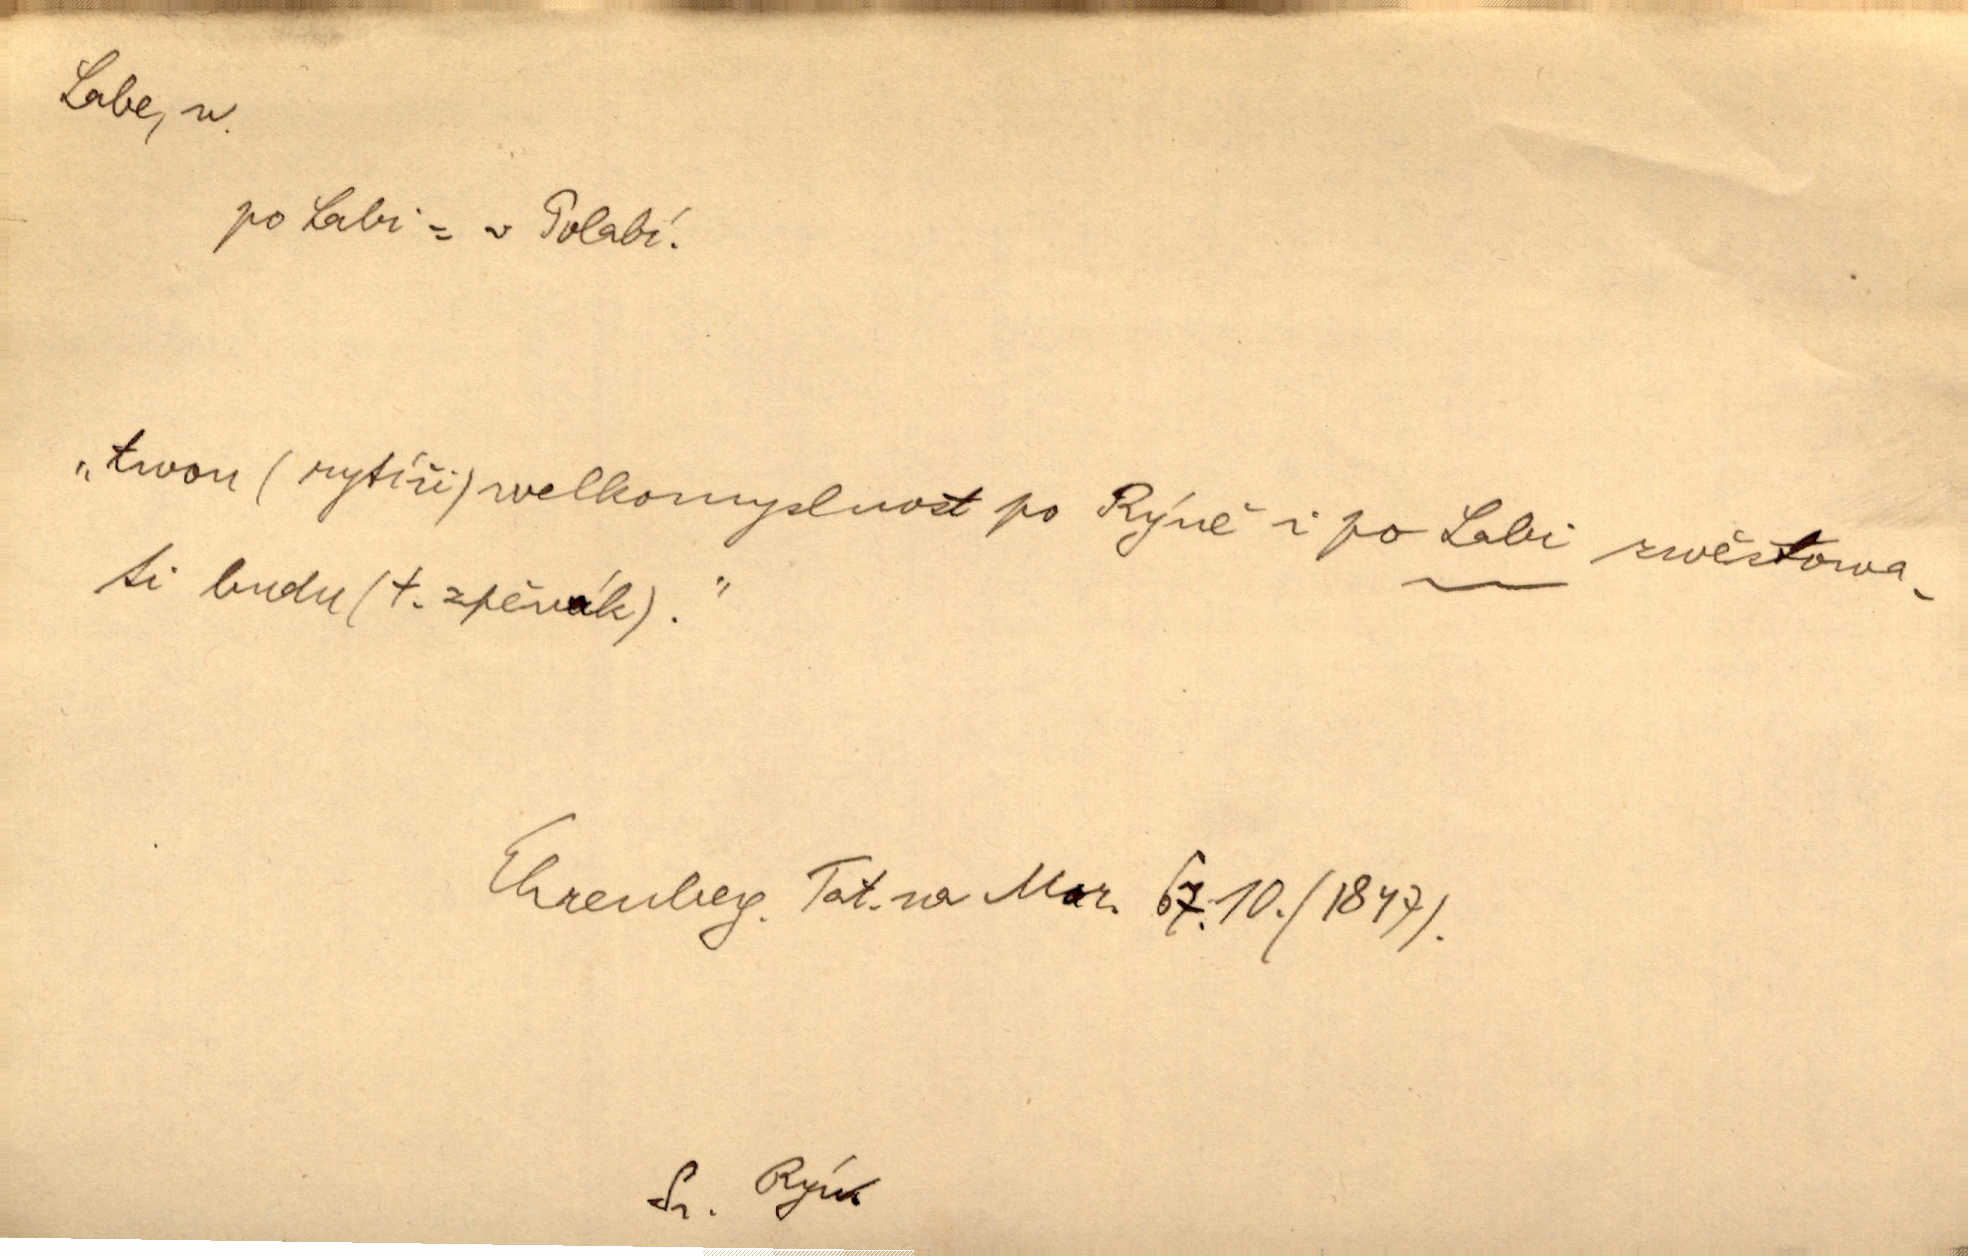 Labe, n.
po Labi = v Polabí.
„twou (rytíři) welkomyslnost po Rýně i po Labi zwěstowa-
ti budu (t. zpěvák)."
Ehrenberg. Tat. na Mor. 67. 10. (1847).
Sr. Rýn